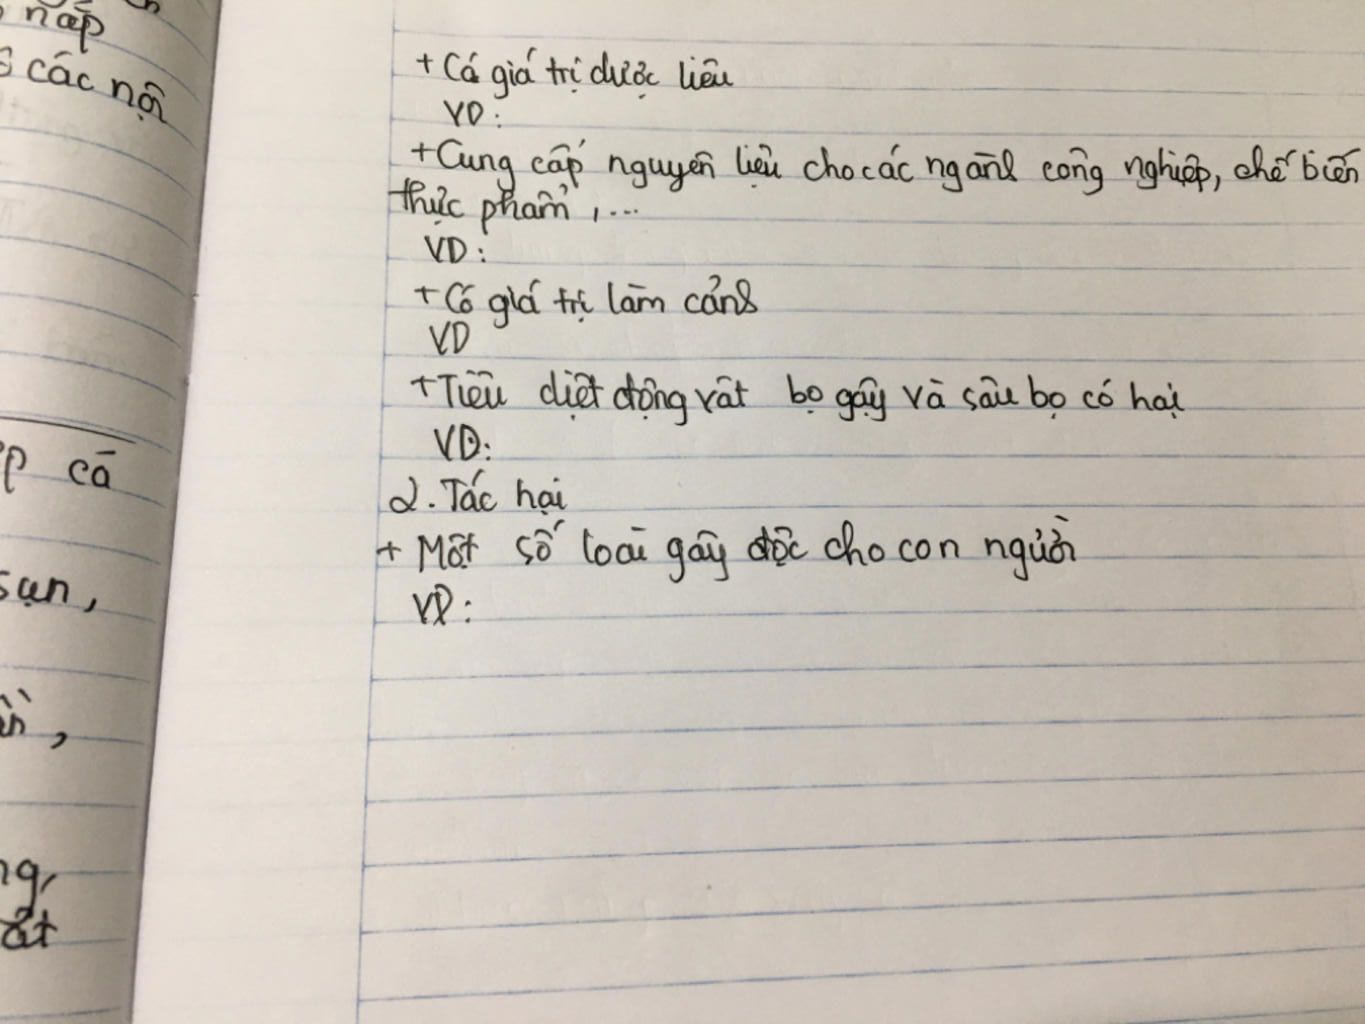 nấp
các nội
cá
sụn,
ng,
ất
+ Cá giá trị dược liệu
VD:
+ Cung cấp nguyên liệu cho các ngành công nghiệp, chế biến
thực phẩm, ...
VD:
+ Có giá trị làm cảnh
VD
+ Tiêu diệt động vật bọ gậy và sâu bọ có hại
VD:
2. Tác hại
+ Một số loài gây độc cho con người
VD: